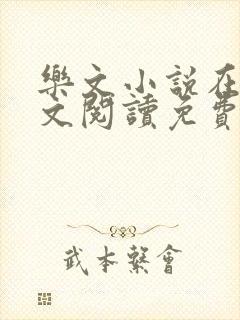 樂文小說在
文閱讀免費
武本繫會